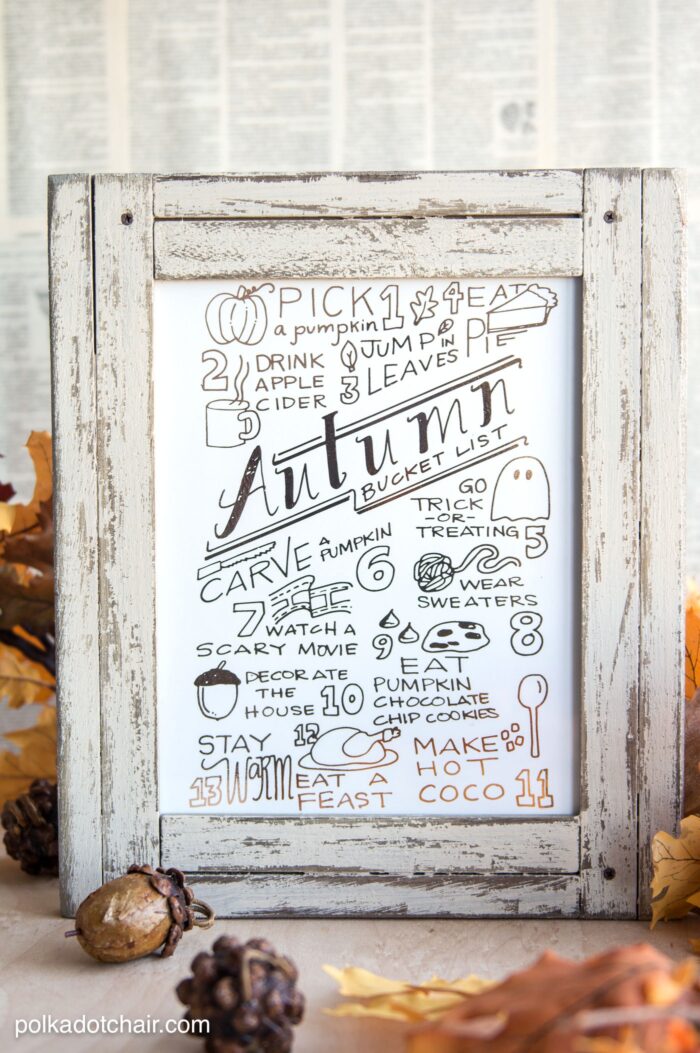 PICK 1
a pumpkin
2 DRINK
APPLE
CIDER
JUMP IN
3 LEAVES
4 EAT
PIE
Autumn
BUCKET LIST
GO
TRICK
-OR-
TREATING 5
CARVE A PUMPKIN
6
7
WATCH A
SCARY MOVIE
WEAR
SWEATERS
8
9
EAT
PUMPKIN
CHOCOLATE
CHIP COOKIES
DECORATE
THE
HOUSE 10
MAKE
HOT
COCO 11
12
EAT A
FEAST
STAY
13 Warm
polkadotchair.com